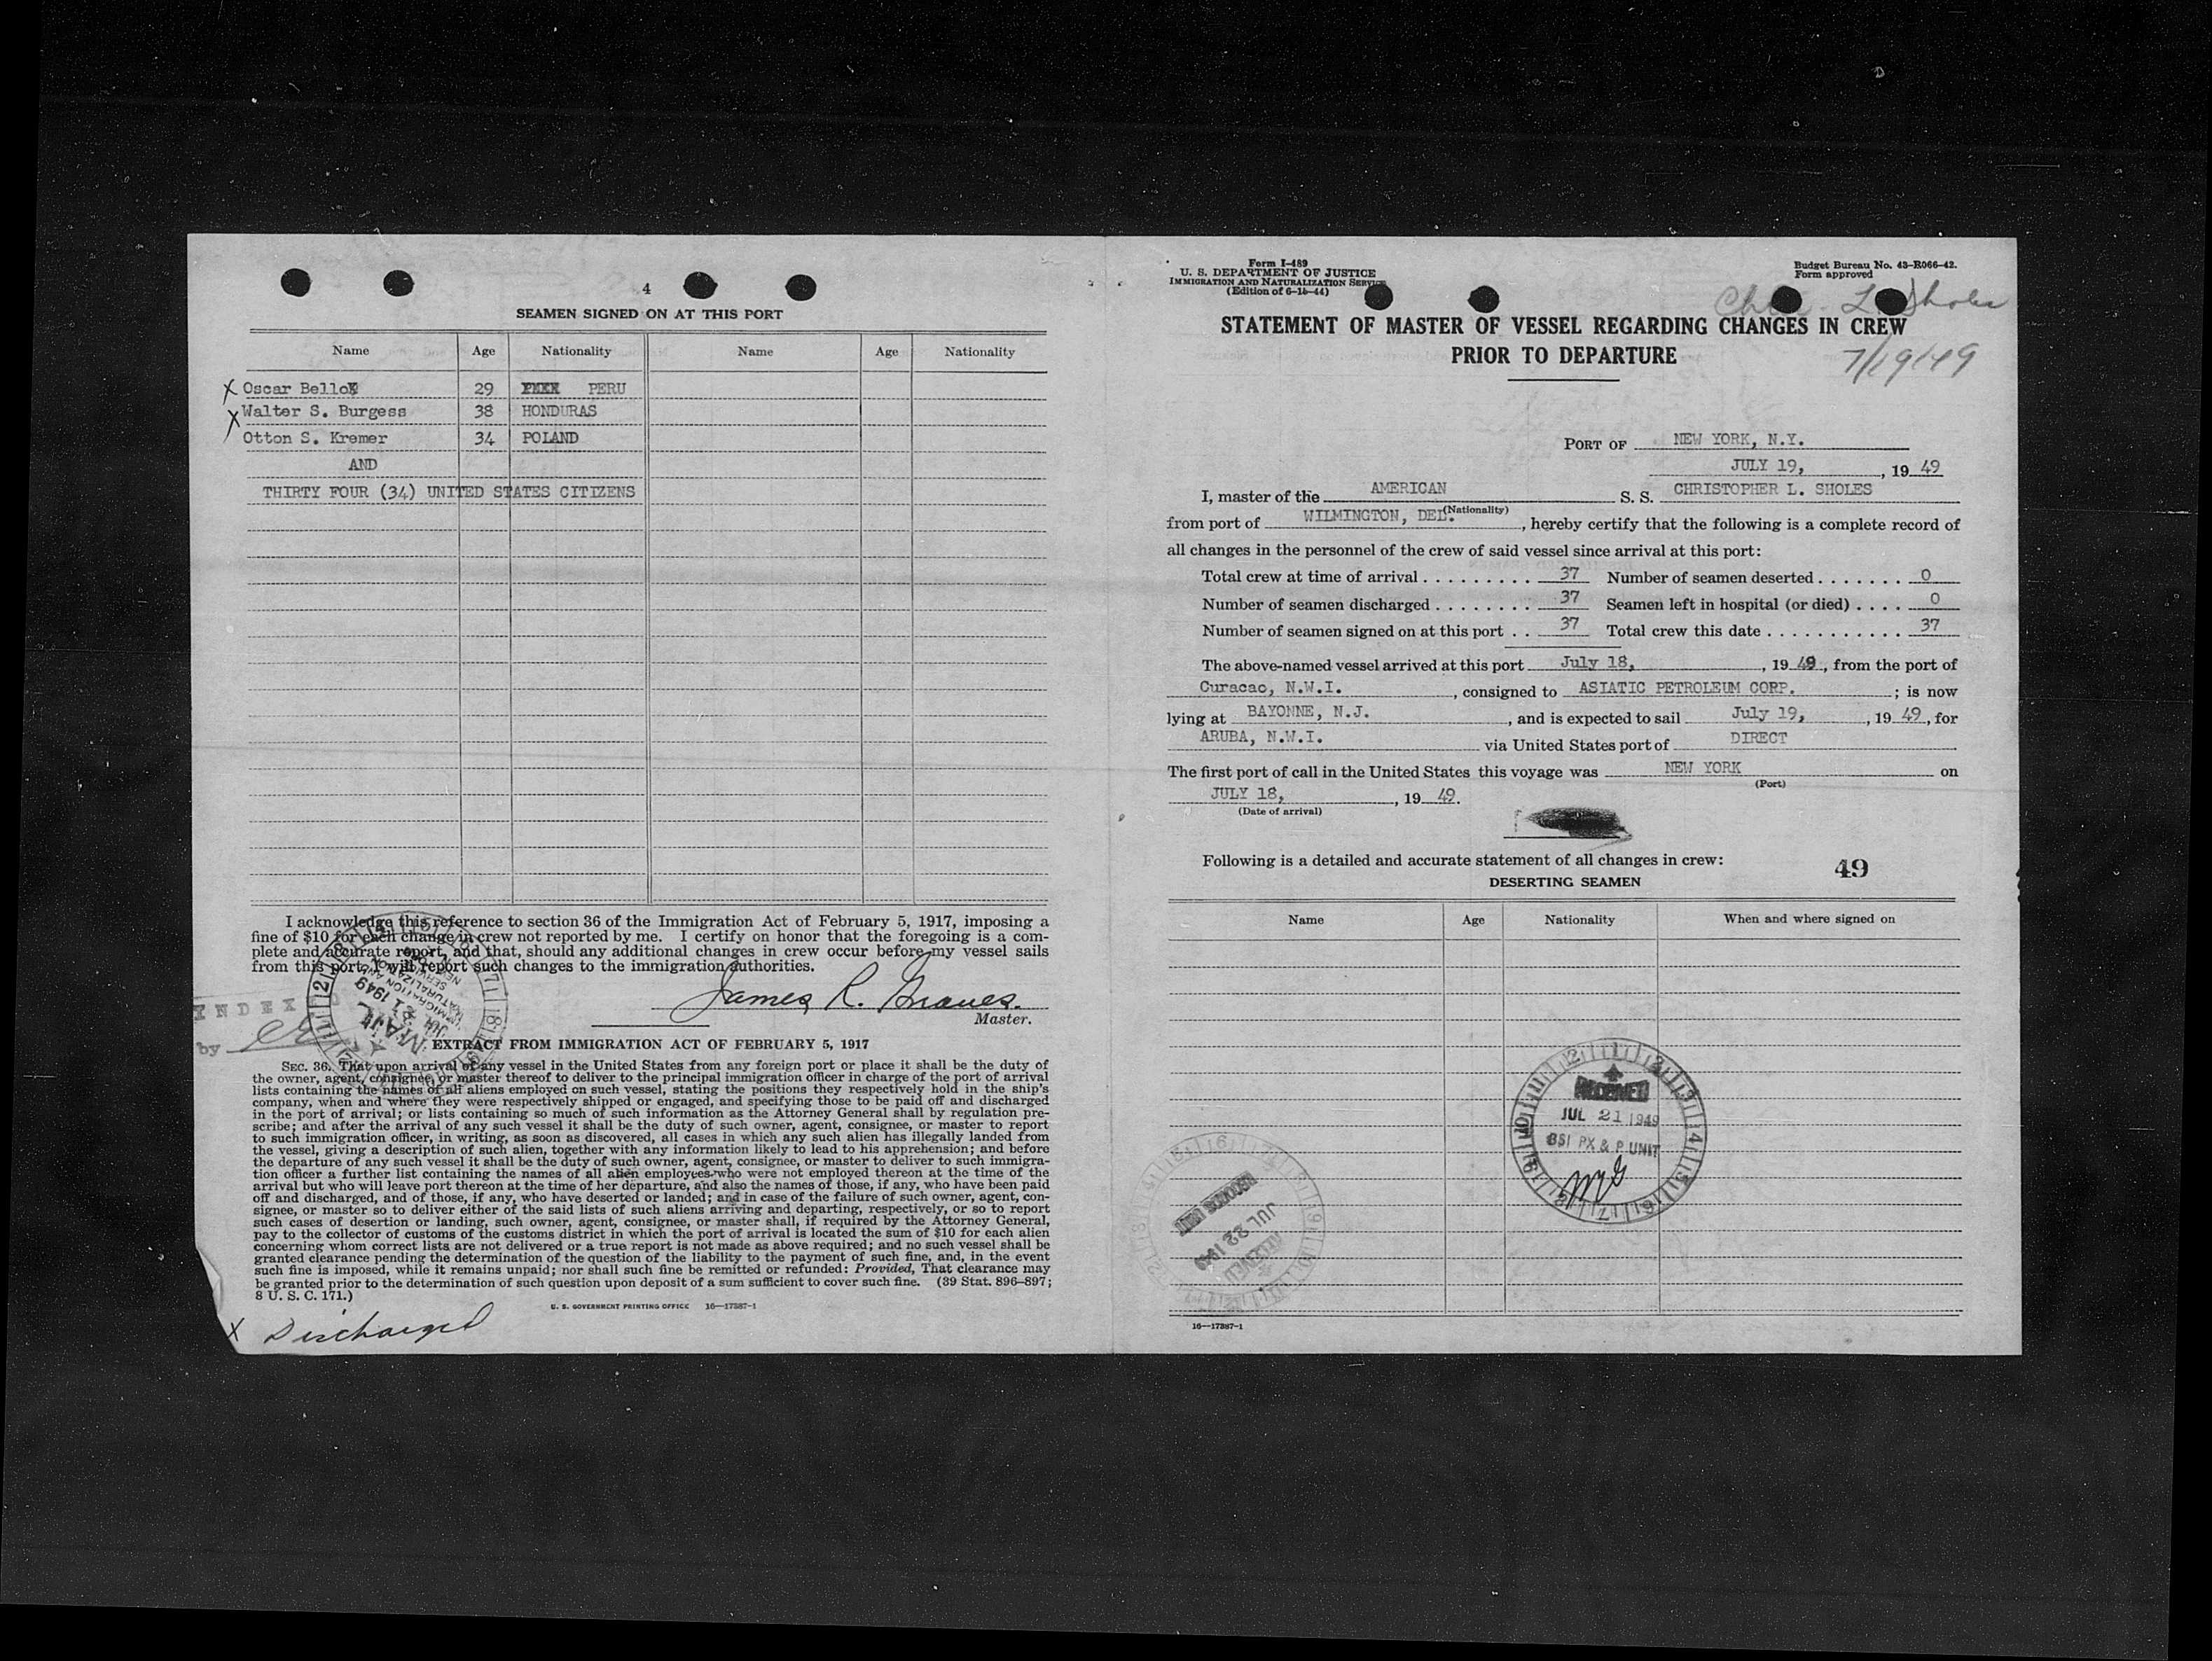 4
SEAMEN SIGNED ON AT THIS PORT
Name Age Nationality Name Age Nationality
X Oscar Bello 29 PERU
X Walter S. Burgess 38 HONDURAS
Otton S. Kremer 34 POLAND
AND
THIRTY FOUR (34) UNITED STATES CITIZENS
I acknowledge this reference to section 36 of the Immigration Act of February 5, 1917, imposing a
fine of $10 for each change in crew not reported by me. I certify on honor that the foregoing is a com-
plete and accurate report, and that, should any additional changes in crew occur before my vessel sails
from this port, I will report such changes to the immigration authorities.
James R. Graves.
Master.
INDEX
by
MAIL
1949
IMMIGRATION AND
NATURALIZATION
SERVICE
EXTRACT FROM IMMIGRATION ACT OF FEBRUARY 5, 1917
SEC. 36. That upon arrival of any vessel in the United States from any foreign port or place it shall be the duty of
the owner, agent, consignee, or master thereof to deliver to the principal immigration officer in charge of the port of arrival
lists containing the names of all aliens employed on such vessel, stating the positions they respectively hold in the ship's
company, when and where they were respectively shipped or engaged, and specifying those to be paid off and discharged
in the port of arrival; or lists containing so much of such information as the Attorney General shall by regulation pre-
scribe; and after the arrival of any such vessel it shall be the duty of such owner, agent, consignee, or master to report
to such immigration officer, in writing, as soon as discovered, all cases in which any such alien has illegally landed from
the vessel, giving a description of such alien, together with any information likely to lead to his apprehension; and before
the departure of any such vessel it shall be the duty of such owner, agent, consignee, or master to deliver to such immigra-
tion officer a further list containing the names of all alien employees who were not employed thereon at the time of the
arrival but who will leave port thereon at the time of her departure, and also the names of those, if any, who have been paid
off and discharged, and of those, if any, who have deserted or landed; and in case of the failure of such owner, agent, con-
signee, or master so to deliver either of the said lists of such aliens arriving and departing, respectively, or so to report
such cases of desertion or landing, such owner, agent, consignee, or master shall, if required by the Attorney General,
pay to the collector of customs of the customs district in which the port of arrival is located the sum of $10 for each alien
concerning whom correct lists are not delivered or a true report is not made as above required; and no such vessel shall be
granted clearance pending the determination of the question of the liability to the payment of such fine, and, in the event
such fine is imposed, while it remains unpaid; nor shall such fine be remitted or refunded: Provided, That clearance may
be granted prior to the determination of such question upon deposit of a sum sufficient to cover such fine. (39 Stat. 896–897;
8 U. S. C. 171.)
U. S. GOVERNMENT PRINTING OFFICE 16—17387-1
X Discharged
Form I-489
U. S. DEPARTMENT OF JUSTICE
IMMIGRATION AND NATURALIZATION SERVICE
(Edition of 6-15-44)
Budget Bureau No. 43-R066-42.
Form approved
Chr. L. Sholes
STATEMENT OF MASTER OF VESSEL REGARDING CHANGES IN CREW
PRIOR TO DEPARTURE
7/19/49
PORT OF NEW YORK, N.Y.
JULY 19, , 19 49
I, master of the AMERICAN S. S. CHRISTOPHER L. SHOLES
(Nationality)
from port of WILMINGTON, DEL. , hereby certify that the following is a complete record of
all changes in the personnel of the crew of said vessel since arrival at this port:
Total crew at time of arrival . . . . . . . . . 37 Number of seamen deserted . . . . . . . 0
Number of seamen discharged . . . . . . . . 37 Seamen left in hospital (or died) . . . . 0
Number of seamen signed on at this port . . 37 Total crew this date . . . . . . . . . . . 37
The above-named vessel arrived at this port July 18, , 19 49 , from the port of
Curacao, N.W.I. , consigned to ASIATIC PETROLEUM CORP. ; is now
lying at BAYONNE, N.J. , and is expected to sail July 19, , 19 49 , for
ARUBA, N.W.I. via United States port of DIRECT
The first port of call in the United States this voyage was NEW YORK on
(Port)
JULY 18, , 19 49.
(Date of arrival)
Following is a detailed and accurate statement of all changes in crew:
49
DESERTING SEAMEN
Name Age Nationality When and where signed on
RECEIVED
JUL 21 1949
BSI PX & P. UNIT
JUL 22 1949
RECEIVED
16—17387-1